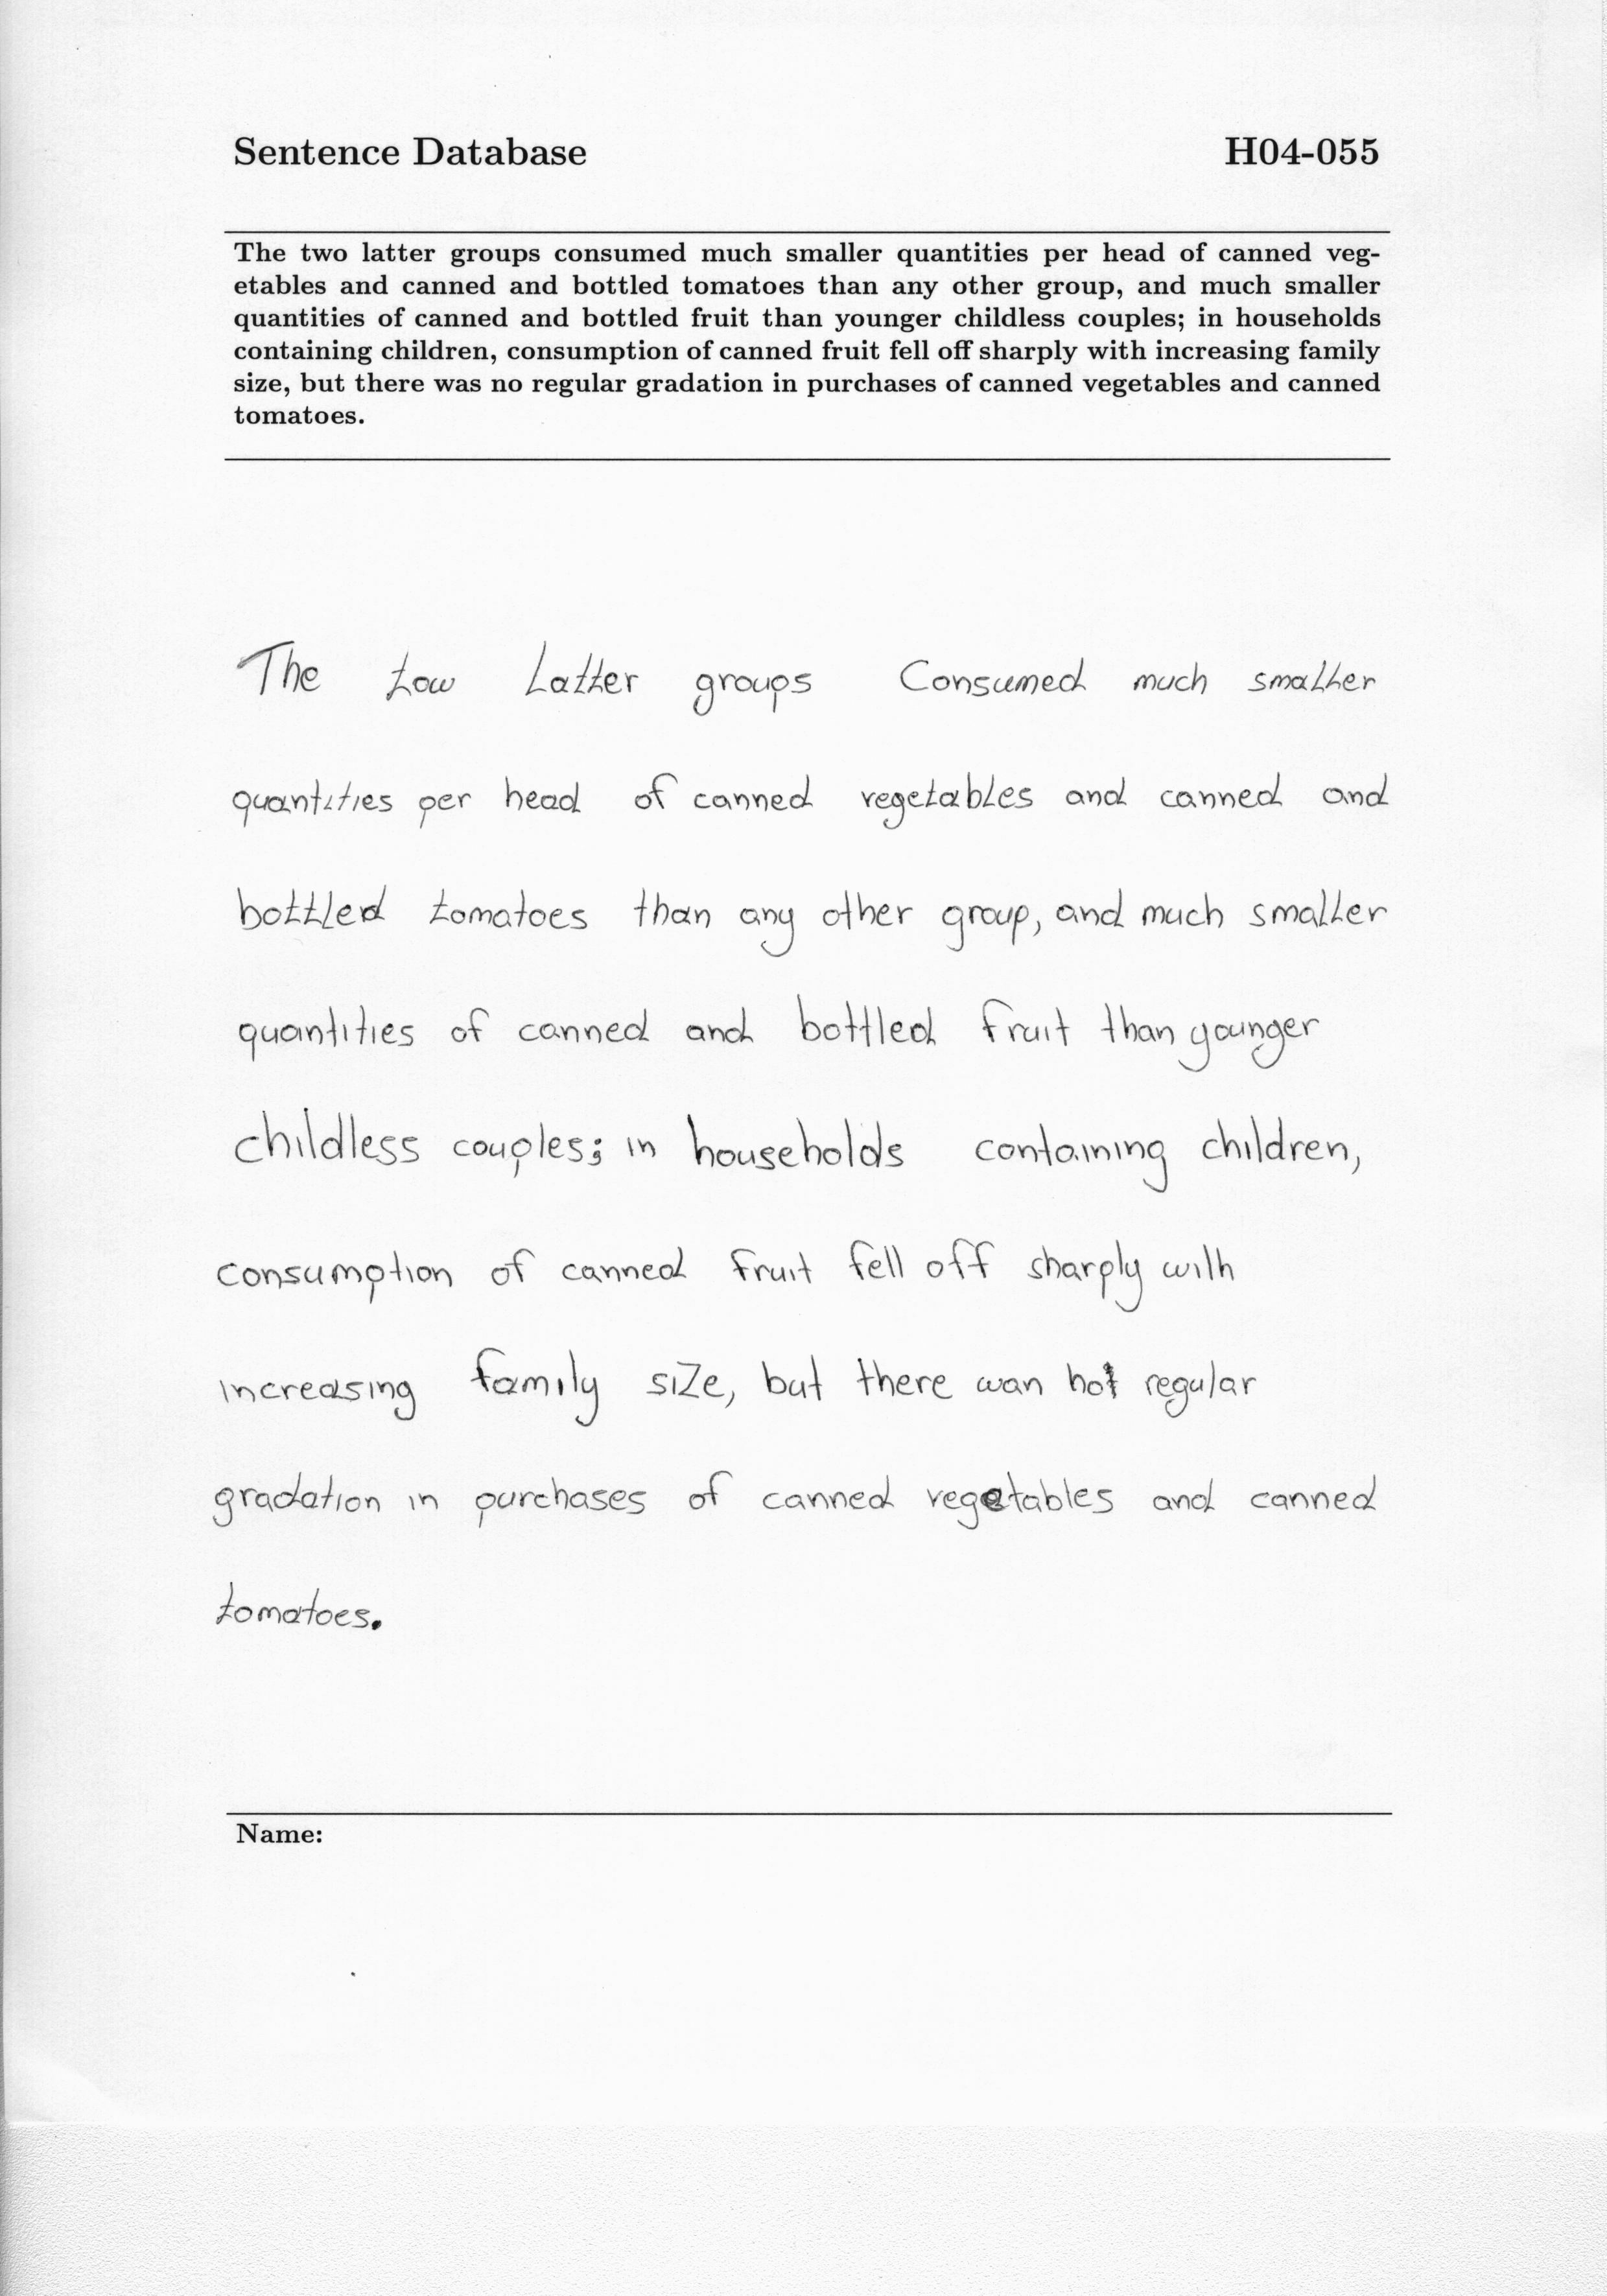 Sentence Database H04-055
The two latter groups consumed much smaller quantities per head of canned veg-
etables and canned and bottled tomatoes than any other group, and much smaller
quantities of canned and bottled fruit than younger childless couples; in households
containing children, consumption of canned fruit fell off sharply with increasing family
size, but there was no regular gradation in purchases of canned vegetables and canned
tomatoes.
The tow Latter groups Consumed much smaller
quantities per head of canned vegetables and canned and
bottled tomatoes than any other group, and much smaller
quantities of canned and bottled fruit than younger
childless couples; in households containing children,
consumption of canned fruit fell off sharply with
increasing family size, but there wan not regular
gradation in purchases of canned vegetables and canned
tomatoes.
Name: